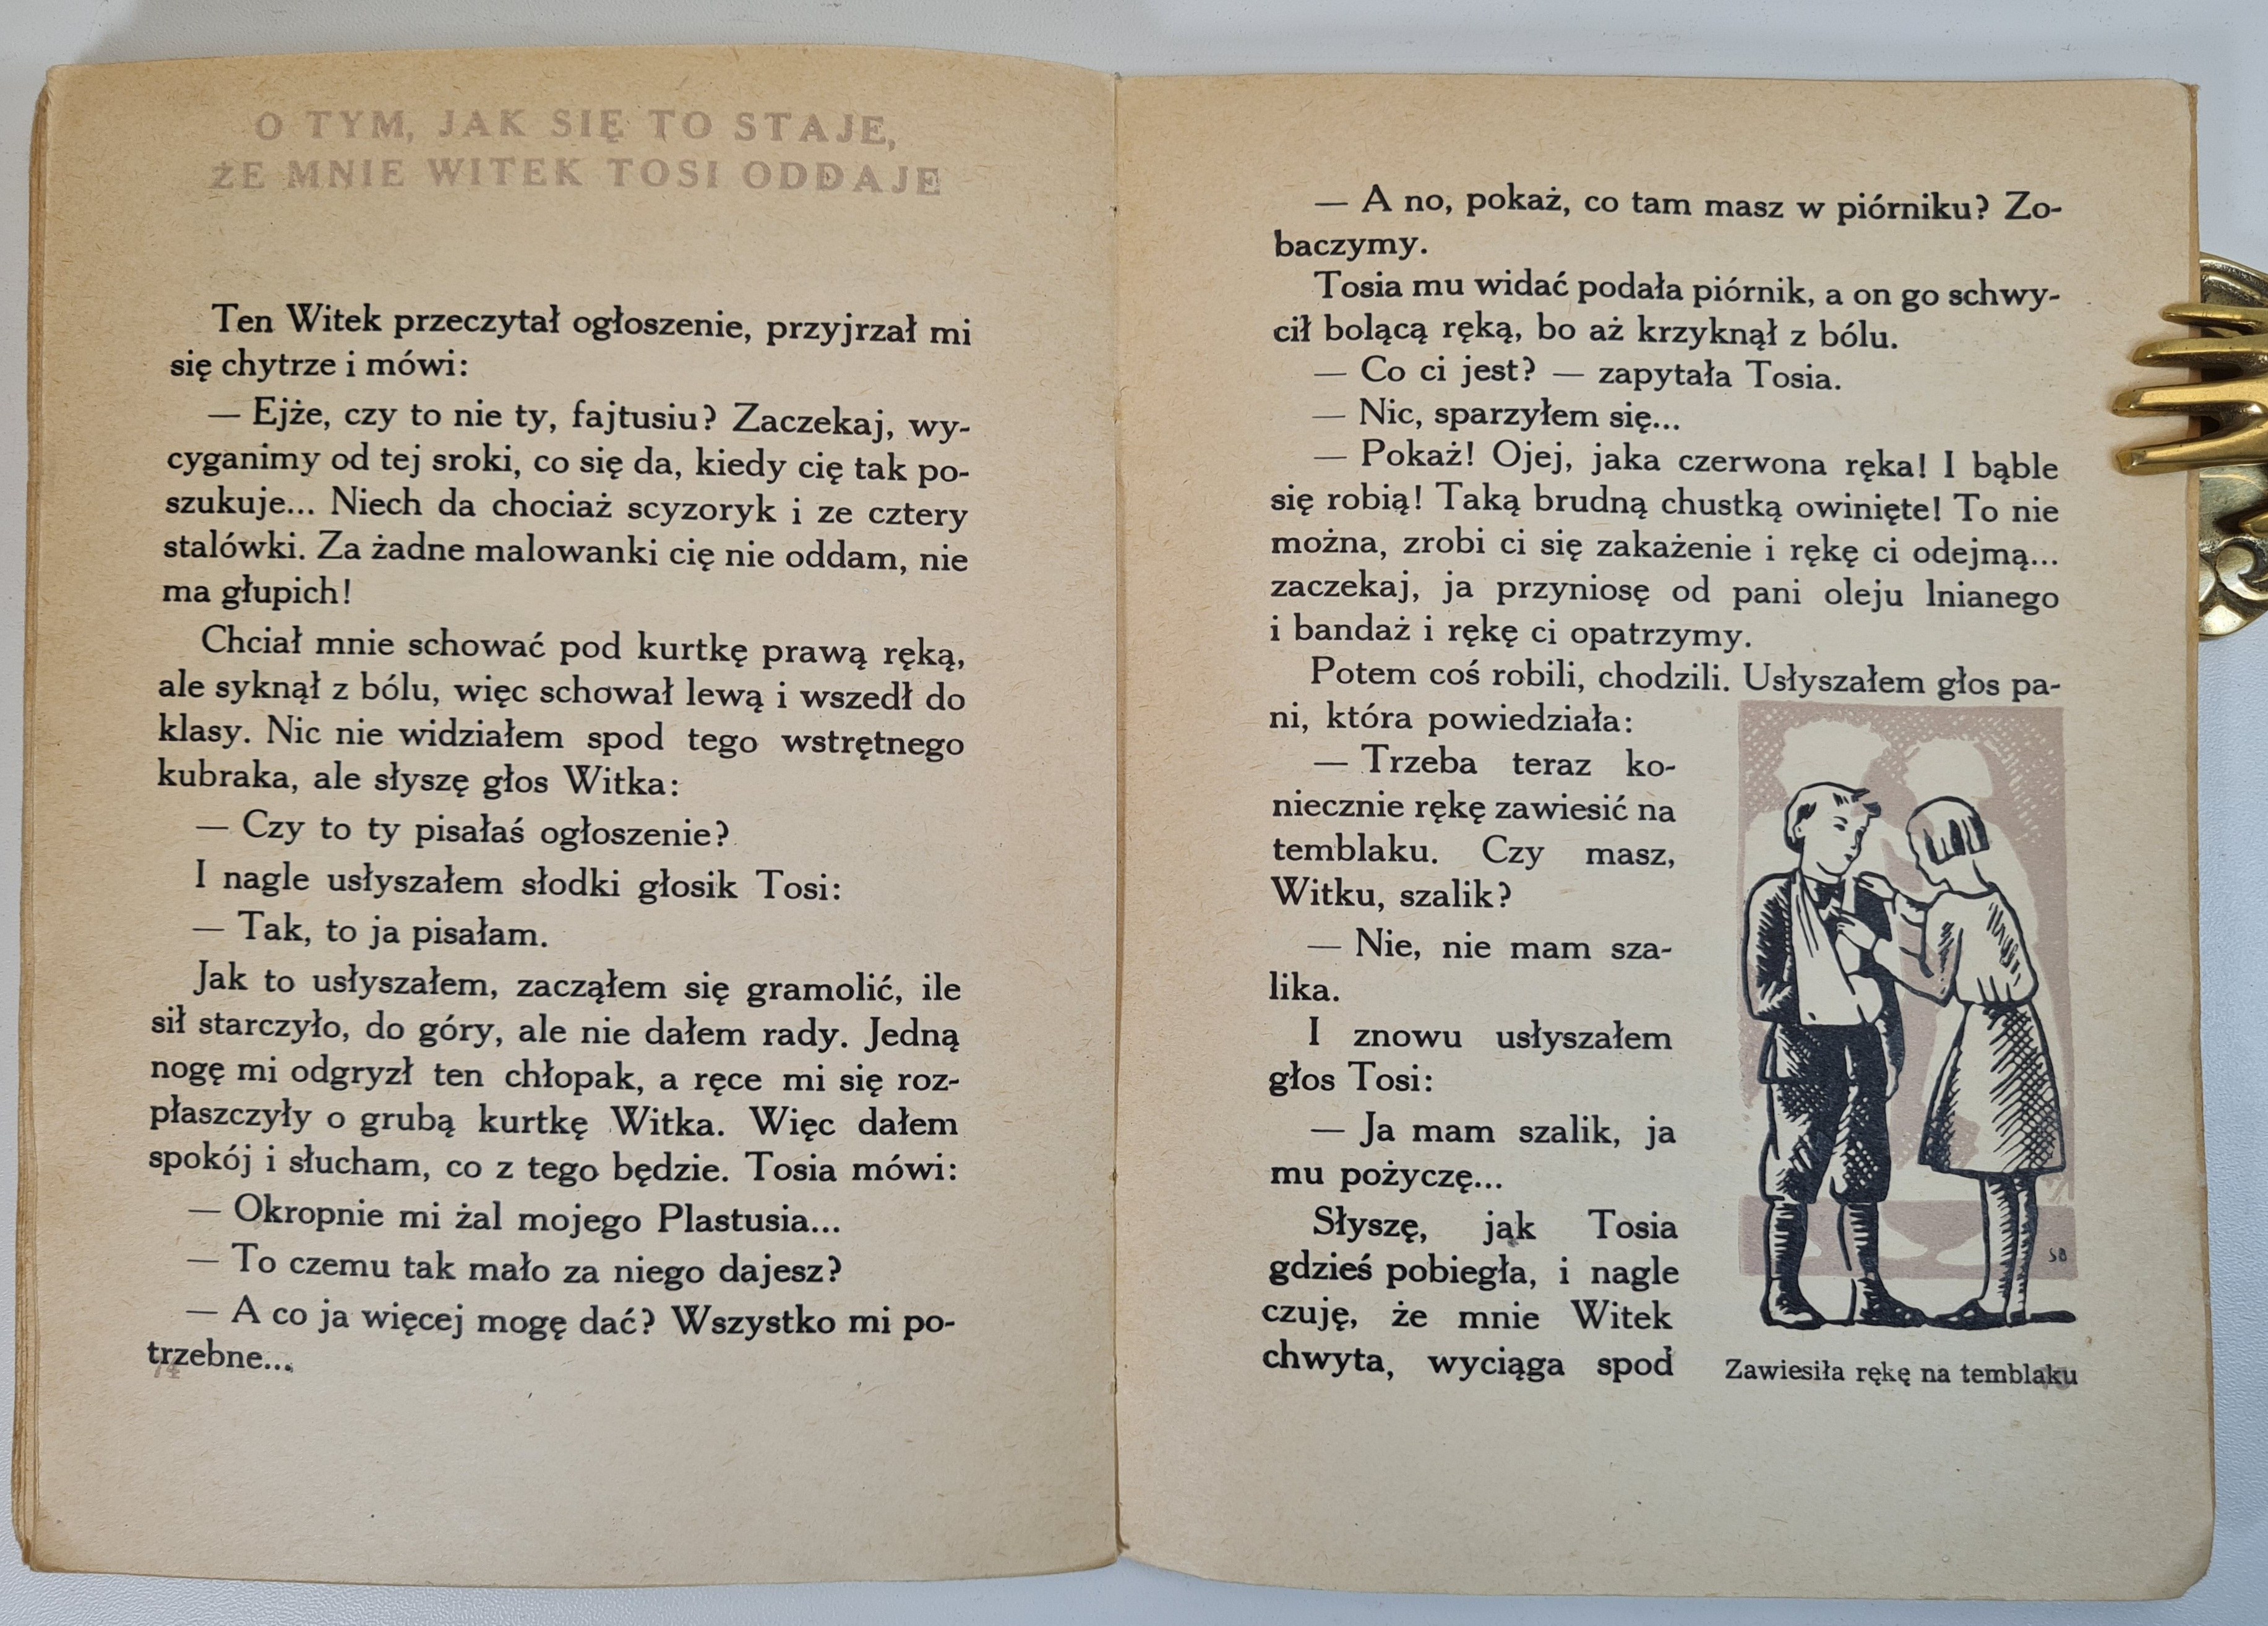 O TYM, JAK SIĘ TO STAJE,
ŻE MNIE WITEK TOSI ODDAJE
Ten Witek przeczytał ogłoszenie, przyjrzał mi
się chytrze i mówi:
— Ejże, czy to nie ty, fajtusiu? Zaczekaj, wy-
cyganimy od tej sroki, co się da, kiedy cię tak po-
szukuje... Niech da chociaż scyzoryk i ze cztery
stalówki. Za żadne malowanki cię nie oddam, nie
ma głupich!
Chciał mnie schować pod kurtkę prawą ręką,
ale syknął z bólu, więc schował lewą i wszedł do
klasy. Nic nie widziałem spod tego wstrętnego
kubraka, ale słyszę głos Witka:
— Czy to ty pisałaś ogłoszenie?
I nagle usłyszałem słodki głosik Tosi:
— Tak, to ja pisałam.
Jak to usłyszałem, zacząłem się gramolić, ile
sił starczyło, do góry, ale nie dałem rady. Jedną
nogę mi odgryzł ten chłopak, a ręce mi się roz-
płaszczyły o grubą kurtkę Witka. Więc dałem
spokój i słucham, co z tego będzie. Tosia mówi:
— Okropnie mi żal mojego Plastusia...
— To czemu tak mało za niego dajesz?
— A co ja więcej mogę dać? Wszystko mi po-
trzebne...
74
— A no, pokaż, co tam masz w piórniku? Zo-
baczymy.
Tosia mu widać podała piórnik, a on go schwy-
cił bolącą ręką, bo aż krzyknął z bólu.
— Co ci jest? — zapytała Tosia.
— Nic, sparzyłem się...
— Pokaż! Ojej, jaka czerwona ręka! I bąble
się robią! Taką brudną chustką owinięte! To nie
można, zrobi ci się zakażenie i rękę ci odejmą...
zaczekaj, ja przyniosę od pani oleju lnianego
i bandaż i rękę ci opatrzymy.
Potem coś robili, chodzili. Usłyszałem głos pa-
ni, która powiedziała:
— Trzeba teraz ko-
niecznie rękę zawiesić na
temblaku. Czy masz,
Witku, szalik?
— Nie, nie mam sza-
lika.
I znowu usłyszałem
głos Tosi:
— Ja mam szalik, ja
mu pożyczę...
Słyszę, jak Tosia
gdzieś pobiegła, i nagle
czuję, że mnie Witek
chwyta, wyciąga spod
SB
Zawiesiła rękę na temblaku